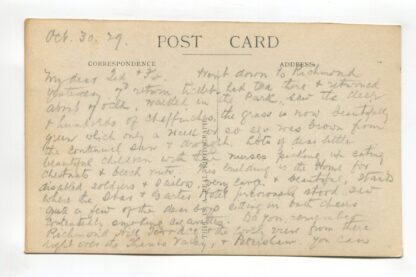 Oct. 30. 29.
POST CARD
CORRESPONDENCE
ADDRESS
My dear Went down to Richmond
yesterday, return ticket had tea there & returned
about 6 o'clk, walked in the Park, saw the deer
& hundreds of chaffinches, the grass is now beautifully
green which only a week or so ago was brown from
the continual sun & drought. Lots of dear little
beautiful children with their nurses picking up & eating
chestnuts & beech nuts. building is the Home for
disabled soldiers & sailors, very large & beautiful, stands
where the Star & Garter Hotel previously stood. Saw
quite a few of the dear boys sitting in bath chairs
contentedly smoking cigarettes. Do you remember
Richmond Hill Terrace & the lovely view from there
right over the Thames Valley, & Petersham. You can